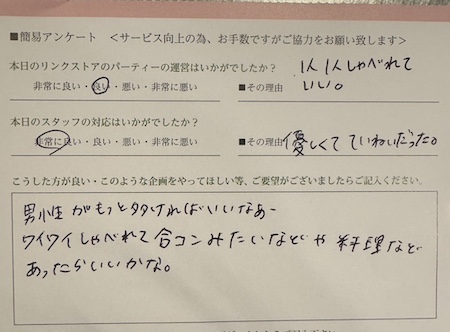 ■簡易アンケート <サービス向上の為、お手数ですがご協力をお願い致します>
本日のリンクストアのパーティーの運営はいかがでしたか?
1人1人しゃべれて
いい。
非常に良い・良い・悪い・非常に悪い ■その理由
本日のスタッフの対応はいかがでしたか?
非常に良い・良い・悪い・非常に悪い ■その理由 優しくてていねいだった。
こうした方が良い・このような企画をやってほしい等、ご要望がございましたらご記入ください。
男性がもっと多ければいいなあー
ワイワイしゃべれて合コンみたいなどや料理など
あったらいいかな。